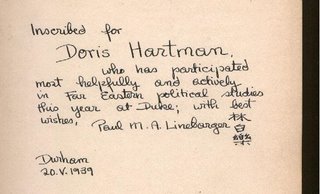 Inscribed for
Doris Hartman,
who has participated
most helpfully and actively
in Far Eastern political studies
this year at Duke; with best
wishes, Paul M. A. Linebarger
林
白
樂
Durham
20.V.1939